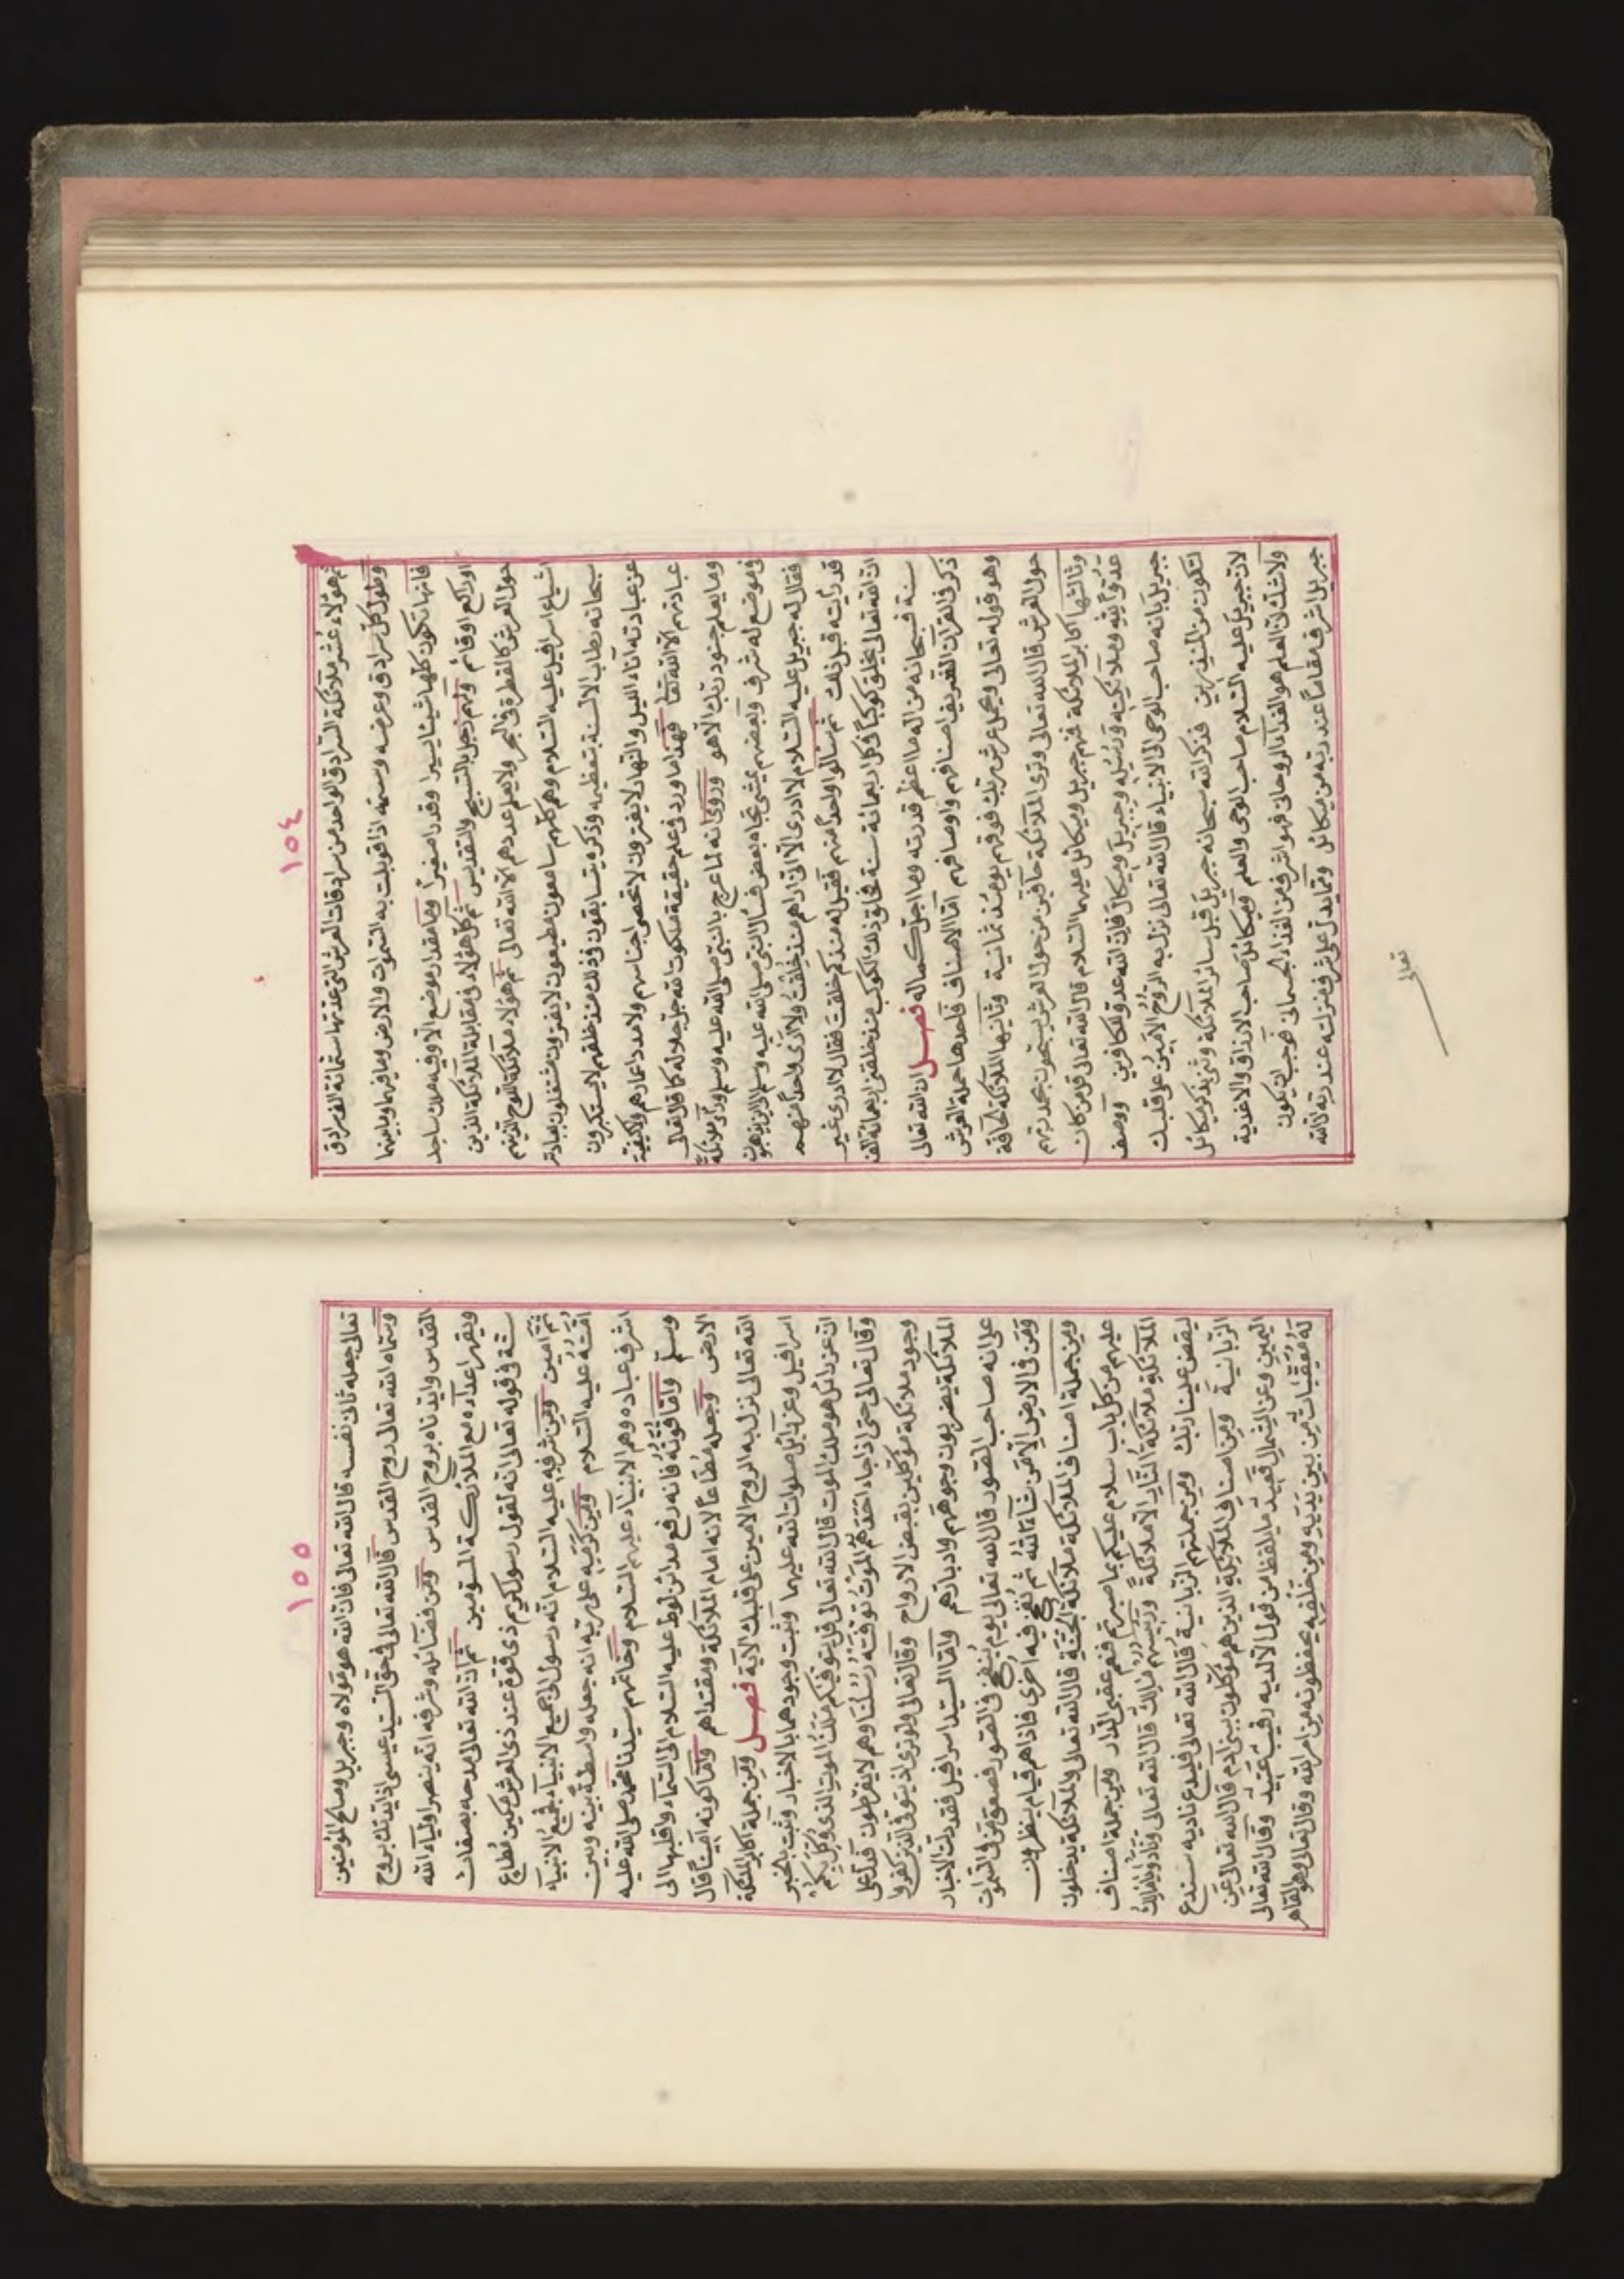 ١٥٤
ثم هؤلاء عُشر ملائكة السرادق الواحد من سرادقات العرش التي عدتها ستمائة الف سرادق
وطول كل سرادق وعرضه وسمكه اذا قوبلت به السموات والارض وما فيهما وما بينهما
فانها تكون كلها شيئا يسيرا وقدرا صغيرا وما مقدار موضع الا وفيه ملك ساجد
او راكع او قائم ولهم زجل بالتسبيح والتقديس ثم كل هؤلاء في مقابلة الملائكة الذين
حول العرش كالقطرة في البحر ولا يعلم عددهم الا الله تعالى ثم هؤلاء ملائكة اللوح الذين هم
اشياع اسرافيل عليه السلام وهم كلهم سامعون مطيعون لا يفترون مشتغلون بعبادته
سبحانه رطاب الالسنة بتعظيمه وذكره يتسابقون في ذلك منذ خلقهم لا يستكبرون
عن عبادته آناء الليل والنهار لا يفترون لا تحصى اجناسهم ولا مدد اعمارهم ولا كيفية
عبادتهم الا الله تعا فهذا ما ورد في علم حقيقة ملكوت الله جل جلاله كما قال تعالى
وما يعلم جنود ربك الا هو وروى انه لما عرج بالنبي صلى الله عليه وسلم ورأى ملائكة
في موضع له شرف وبعضهم يمشي تجاه بعض فسأل النبي صلى الله عليه وسلم الى اين يذهبون
فقال له جبريل عليه السلام لا ادرى الا انى اراهم منذ خُلِقْتُ ولا أرى واحدا منهم
قد رأيته قبل ذلك ثم سألوا واحدا منهم فقيل له منذ كم خلقت فقال لا ادرى غير
ان الله تعالى يخلق كوكبًا في كل اربعمائة سنة فخلق ذلك الكوكب منذ خلقني اربعمائة الف
سنة فسبحانه من اله ما اعظم قدرته وما اجل كماله فصل ان الله تعالى
ذكر في القرآن الشريف اصنافهم واوصافهم اما الاصناف فاحدها حملة العرش
وهو قوله تعالى ويحمل عرش ربك فوقهم يومئذ ثمانية وثانيها الملائكة الحافة
حول العرش قال الله تعالى وترى الملائكة حافين من حول العرش يسبحون بحمد ربهم
وثالثها اكابر الملائكة فمنهم جبريل وميكائل عليهما السلام قال الله تعالى قل من كان
عَدُوًّا لِلّٰهِ وملائكته ورُسُلِهِ وجبريلَ وميكالَ فانَّ اللهَ عدو للكافرين ووصف
جبريل بانه صاحب الوحى الى الانبياء قال الله تعالى نزل به الرُّوحُ الأمينُ على قلبك
لتكون من المنذرين فذكر الله سبحانه جبريل قبل سائر الملائكة وثنى بذكر ميكائل
لان جبريل عليه السلام صاحب الوحى والعلم وميكائل صاحب الارزاق والاغذية
ولا شك ان العلم هو الغذاء الروحانى فهو اشرف من الغذاء الجسمانى فوجب ان يكون
جبريل اشرف مقاما عند ربه من ميكائل ومما يدل على شرف منزلته عند ربه لان الله
تعالى
١٥٥
تعالى جعله ثانى نفسه قال الله تعالى فان الله هو مولاه وجبريل وصالح المؤمنين
وسماه الله تعالى روح القدس قال الله تعالى في حق السيد عيسى اذ ايدتك بروح
القدس وايدناه بروح القدس ومن فضائله وشرفه انه ينصر اولياء الله
ويقهر اعداءه مع الملائكة المسومين ثم ان الله تعالى مدحه بصفات
ستة في قوله تعالى انه لقول رسول كريم ذى قوة عند ذى العرش مكين مُطاع
ثَمَّ امين ومن شرفه عليه السلام انه رسول الى جميع الانبياء فجميعُ الانبياء
اُمَّتُهُ عليه السلام ومِن كرمه على ربه انه جعله واسطةً بينه وبين
اشرف عباده وهم الانبياء عليهم السلام وخاتمهم سيدنا محمد صلى الله عليه
وسلم وامّا قُوتُهُ فانه رفع مدائن لوط عليه السلام الى السماء واقلبها الى
الارض وجعله مُطَاعًا لانه امام الملائكة ومقتداهم وامّا كونه امينًا قال
الله تعالى نزل به الروح الامين على قلبك الآية فصل ومن جملة اكابر الملائكة
اسرافيل وعزرائيل صلوات الله عليهما وثبت وجودهما بالاخبار وثبت بالخبر
ان عزرائل هو ملك الموت قال الله تعالى قل يتوفيكم مَلَكُ الموت الذى وُكِّلَ بِكُم
وقال تعالى حتى اذا جاء احدَكُمُ الموتُ توفته رُسُلُنا وهم لا يفرطون فدل على
وجود ملائكة موكلين بقبض الارواح وقال تعالى ولو ترى اذ يتوفى الذين كفروا
الملائكة يضربون وجوههم وادبارهم وامّا السيد اسرافيل فقد دلت الاخبار
على انه صاحب الصور قال الله تعالى يوم يُنفخ في الصور فصعق من في السموات
وَمَن في الارض الا من شَاءَ اللهُ ثم نُفِخَ فيه اخرى فاذا هم قيام ينظرون
ومن جملة اصناف الملائكة ملائكة الجنة قال الله تعالى والملائكة يدخلون
عليهم من كل باب سلام عليكم بما صبرتم فنعم عقبى الدار ومن جملة اصناف
الملائكة ملائكة النار الا ملائكةً ورئيسهم مالكٌ قال الله تعالى ونادوا يا مالكُ
ليقض علينا ربك ومن جملتهم الزبانية قال الله تعالى فليدع ناديه سندع
الزبانية ومن اصناف الملائكة الذين هم موكلون ببني آدم قال الله تعالى عَنِ
اليمين وعن الشمال قعيد ما يلفظ من قول الا لديه رقيب عتيد وقال الله تعالى
لَهُ مُعَقِّبَاتٌ مِن بَينِ يَدَيهِ ومِن خَلفِه يحفظونه من امر الله وقال تعالى وهو القاهر